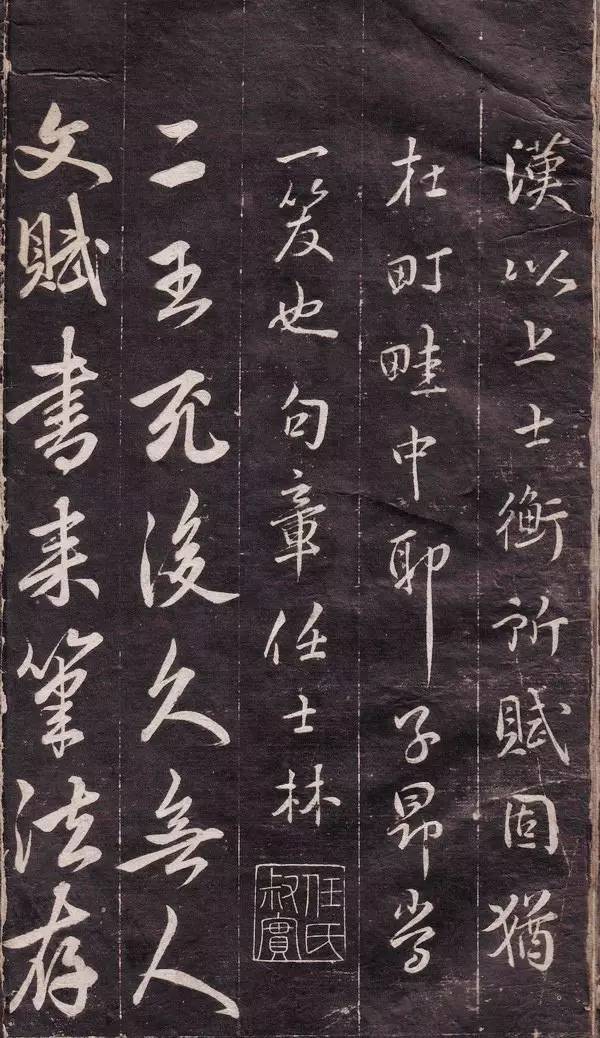 漢以上士衡所賦固猶
在町畦中耶子昂當
一笑也句章任士林
任氏叔實
二王死後久無人
文賦書来筆法存